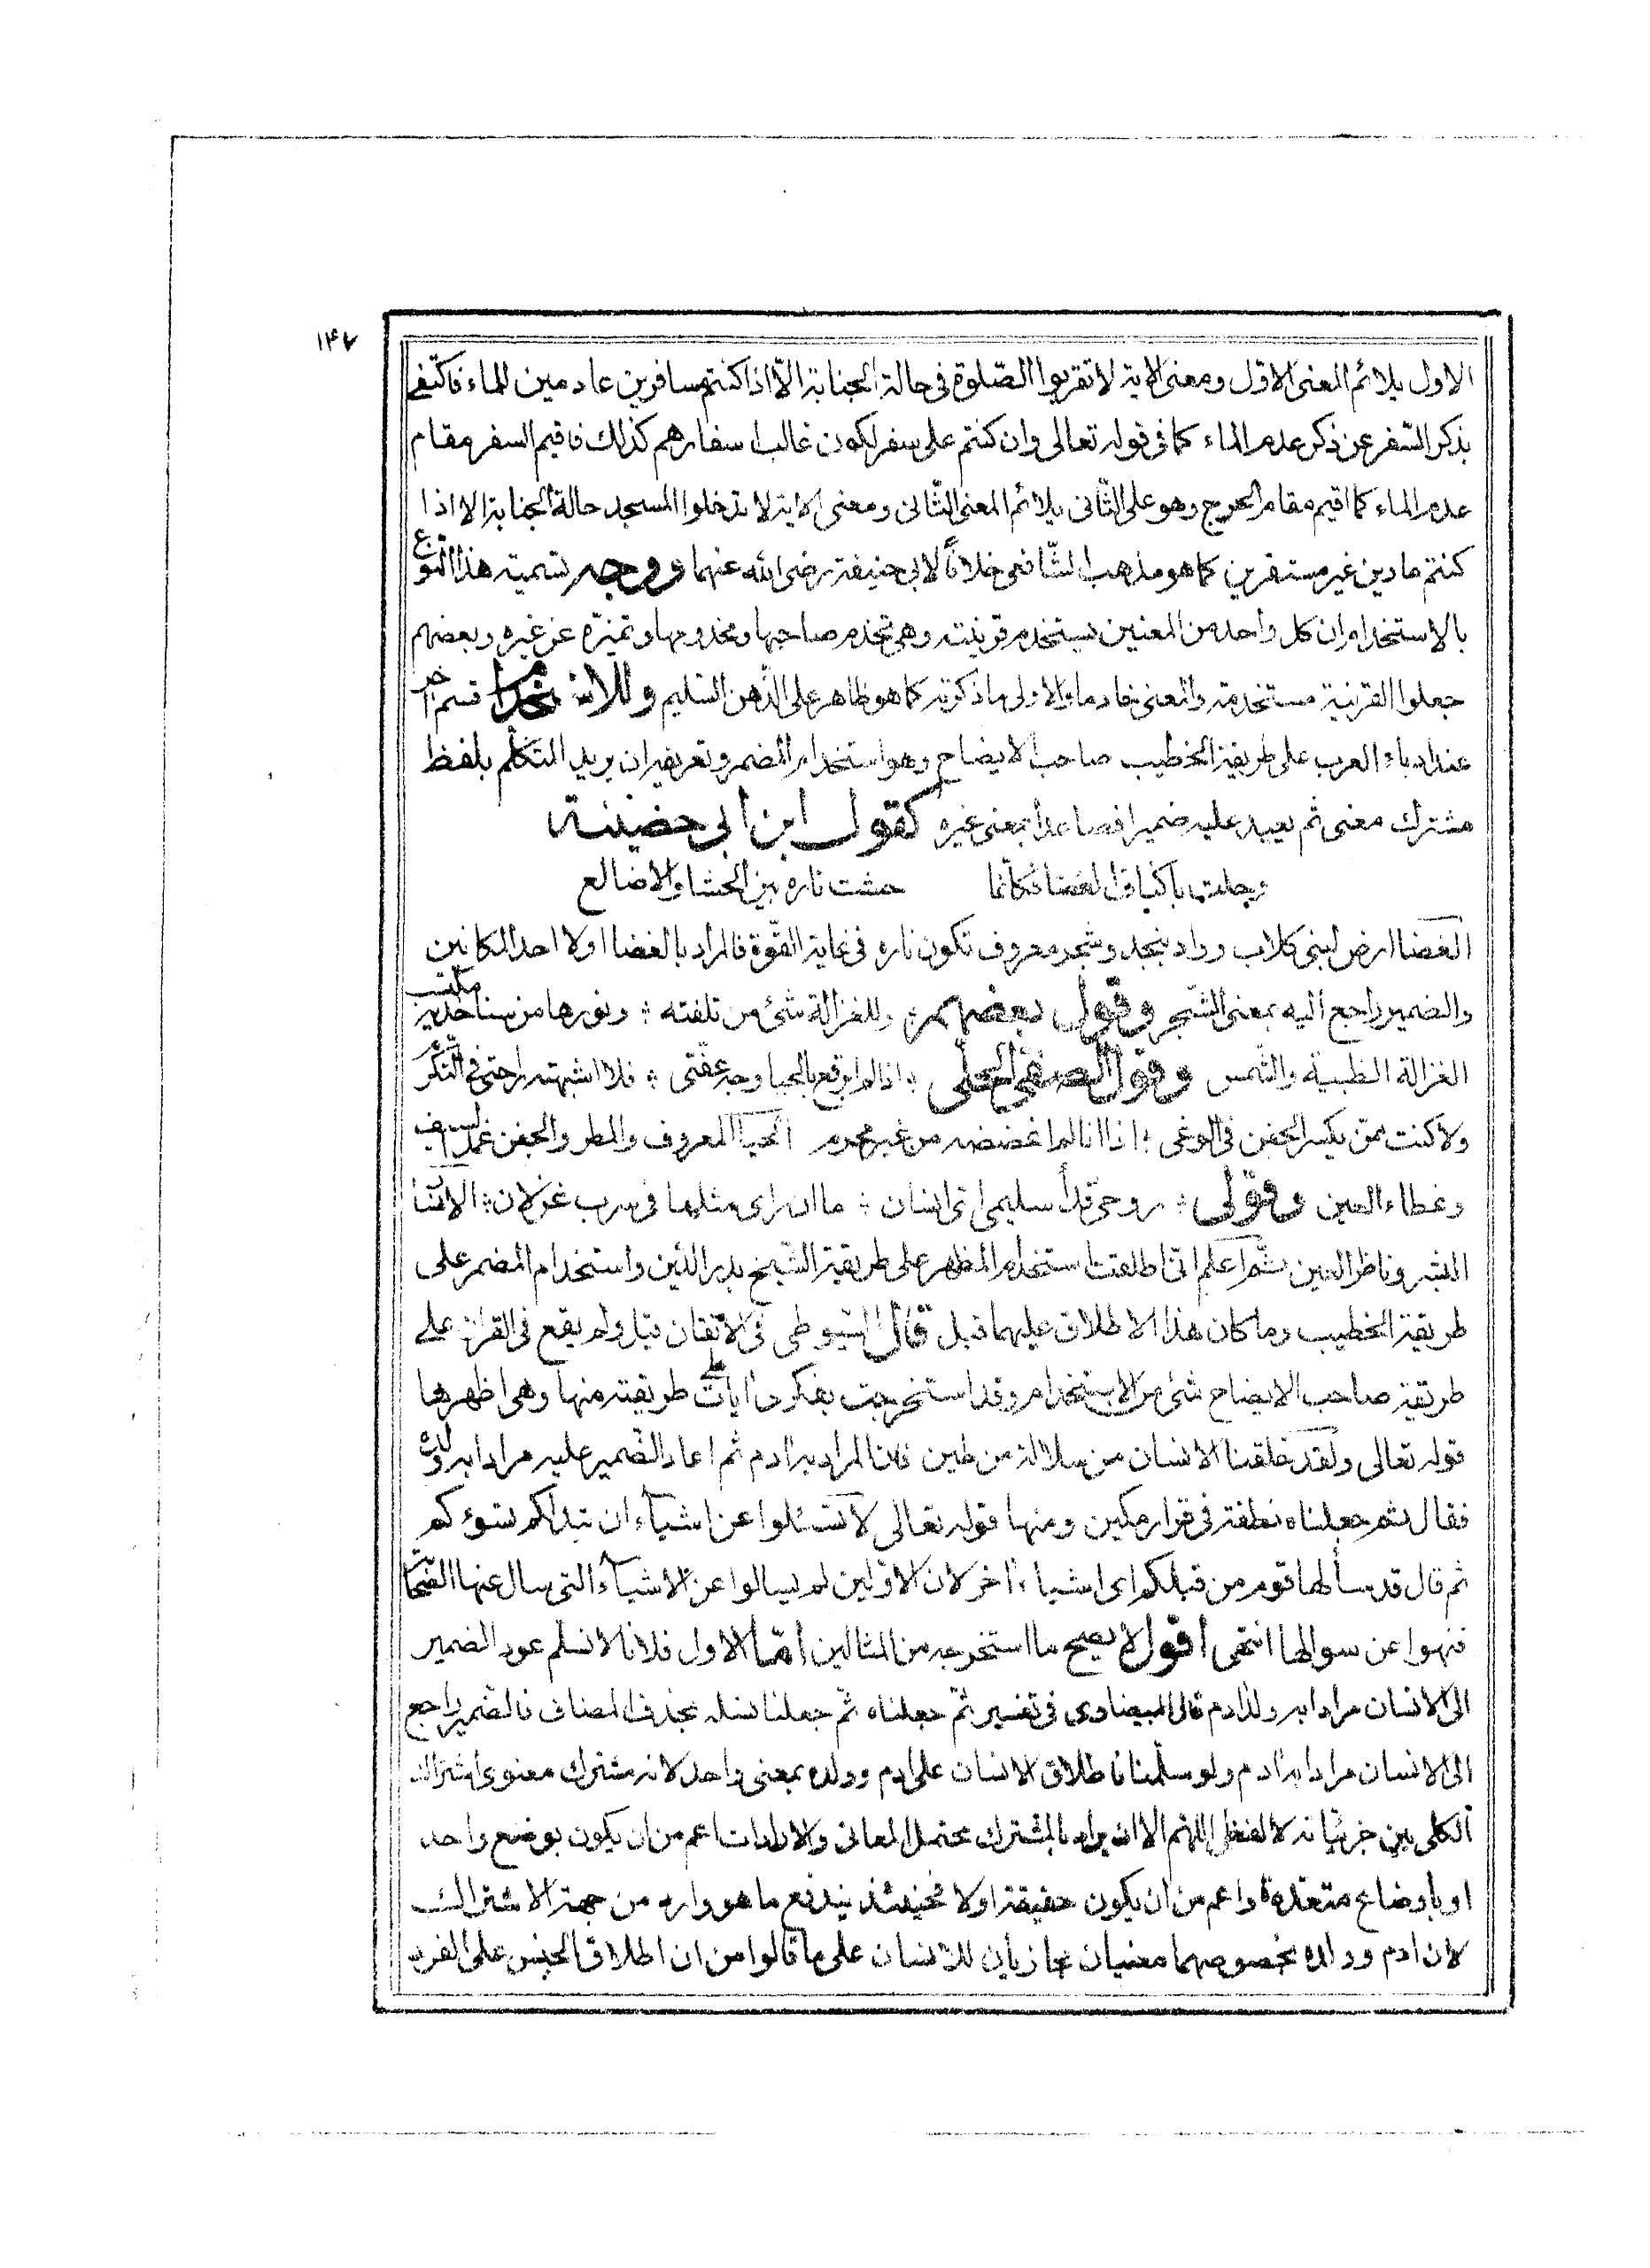 ١٤٧
الاول يلائم المعنى الاوّل ومعنى الاية لا تقربوا الصّلوة فى حالة الجنابة الّا اذا كنتم مسافرين عادمين للماء فاكتفى
بذكر السّفر عن ذكر عدم الماء كما فى قوله تعالى وان كنتم على سفر لكون غالب اسفارهم كذلك فاقيم السفر مقام
عدم الماء كما اقيم مقام الحرج وهو على الثّانى يلائم المعنى الثّانى ومعنى الاية لا تدخلوا المسجد حالة الجنابة الا اذا
كنتم مارين غير مستقرين كما هو مذهب الشّافعى خلافًا لابى حنيفة رضى الله عنهما ووجه تسمية هذا النّوع
بالاستخدام ان كل واحد من المعنين يستخدم قرينته وهى تخدم صاحبها ومخدومها وتميّزه عن غيره وبعضهم
جعلوا القرنية مستخدمة والمعنى خادما والاولى ما ذكرته كما هو ظاهر على الذّهن السّليم وللاستخدام قسم اخر
عند ادباء العرب على طريقة الخطيب صاحب الايضاح وهو استخدام المضمر وتعريفه ان يريد المتكلّم بلفظ
مشترك معنى ثم يعيد عليه ضميرا فصاعدا بمعنى غيره كقول ابن ابى حضينة
وحلت باكناف الغضا فكانّما حشت ناره بين الحشا والاضالع
الغضا ارض لبنى كلاب وواد بنجد وشجر معروف تكون ناره فى غاية القوّة فالمراد بالغضا اولا احد المكانين
والضمير راجع اليه بمعنى الشّجر وقول بعضهم وللغزالة شئ من تلفته ونورها من سنا خدّيه مكتسب
الغزالة الظبية والشّمس وقول الصفى الحلّى اذا لم ابرقع بالحيا وجه عفّتى فلا اشبهته راحتى فى التّكرّم
ولا كنت ممن يكسر الجفن فى الوغى اذا انا لم اغضضه من غير محرم الحيا المعروف والمطر والجفن غمد السيف
وغطاء العين وقولى روحى فدا سليمى اى انسان ما ان راى مثلها فى سرب غزلان الانسان
البشر وناظر العين ثمّ اعلم انّى اطلقت استخدام المظهر على طريقة الشّيخ بدر الدّين واستخدام المضمر على
طريقة الخطيب وما كان هذا الاطلاق عليهما قبل قال السّيوطى فى الاتقان قيل ولم يقع فى القران على
طريقة صاحب الايضاح شئ من الاستخدام وقد استخرجت بفكرى ايات على طريقته منها وهى اظهرها
قوله تعالى ولقد خلقنا الانسان من سلالة من طين فان المراد به ادم ثم اعاد الضّمير عليه مرادا به ولده
فقال ثم جعلناه نطفة فى قرار مكين ومنها قوله تعالى لا تسئلوا عن اشياء ان تبد لكم تسؤكم
ثم قال قد سألها قوم من قبلكم اى اشياء اخر لان الاوّلين لم يسالوا عن الاشياء التى سال عنها الصّحابة
فنهوا عن سوالها انتهى اقول لا يصح ما استخرجه من المثالين امّا الاول فلانا لا نسلم عود الضمير
الى الانسان مرادا به ولد ادم قال البيضاوى فى تفسير ثمّ جعلناه ثمّ جعلنا نسله بحذف المضاف فالضّمير راجع
الى الانسان مرادا به ادم ولو سلّمنا فاطلاق الانسان على ادم وولده بمعنى واحد لانه مشترك معنوى اشتراك
الكلى بين جزئيّاته لا لفظى اللهم الا ان يراد بالمشترك محتمل المعانى والارادات اعم من ان يكون بوضع واحد
او باوضاع متعدّدة واعم من ان يكون حقيقة اولا فحينئذ يندفع ما هو وارد من جهة الاشتراك
لان ادم وولده بخصوصهما معنيان مجازيان للانسان على ما قالوا من ان اطلاق الجنس على الفرد